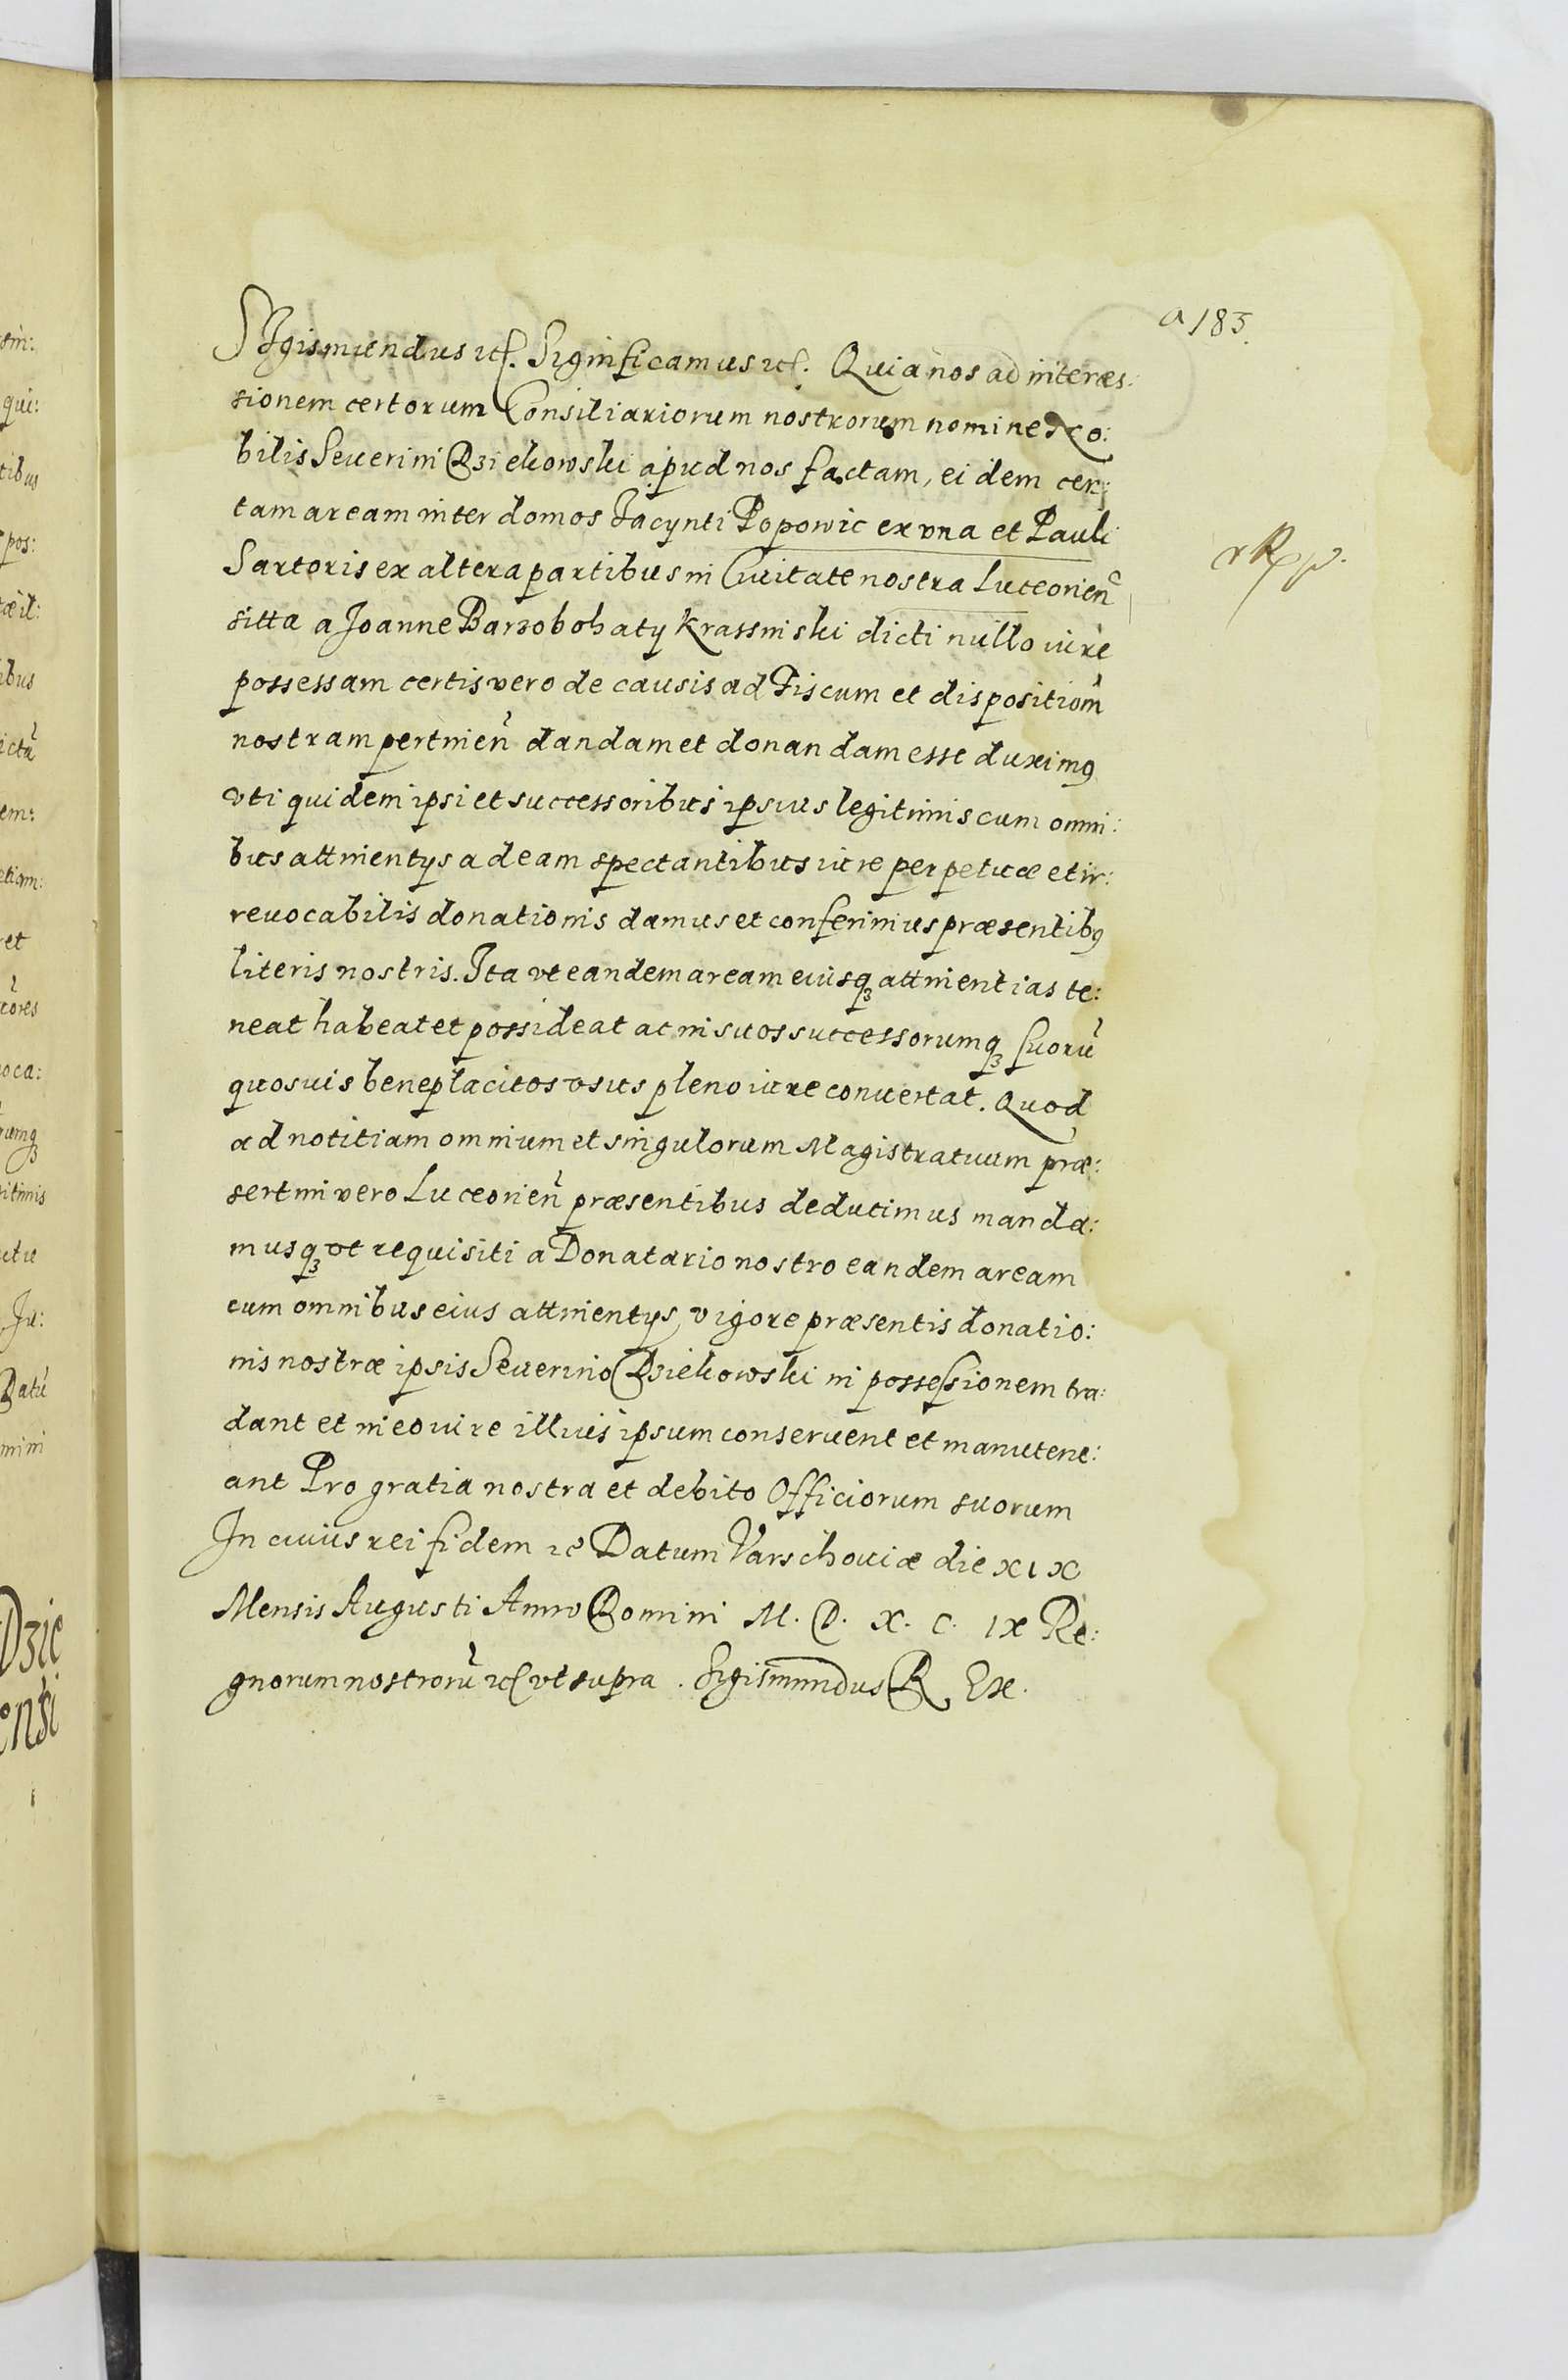 a 183.
Sigismundus etc. Significamus etc. Quia nos ad interces:
sionem certorum Consiliariorum nostrorum nomine No:
bilis Seuerini Dziekowski apud nos factam, eidem cer:
tam aream inter domos Jacynti Popowic ex vna et Pauli
Sartoris ex altera partibus in Ciuitate nostra Luceorien̄
sitta a Joanne Barzobohaty Krassinski dicti nullo iure
possessam certis vero de causis ad Fiscum et dispositiom̄
nostram pertinen̄ dandam et donandam esse duximus
vti quidem ipsi et successoribus ipsius legitimis cum omni:
bus attinentys ad eam spectantibus iure perpetuæ et ir:
reuocabilis donationis damus et conferimus præsentibus
literis nostris. Ita vt eandem aream eiusq; attinentias te:
neat habeat et possideat ac in suos successorumq; suorū
quosuis beneplacitos vsus pleno iure conuertat. Quod
ad notitiam omnium et singulorum Magistratuum præ:
sertim vero Luceorien̄ præsentibus deducimus manda:
musq; vt requisiti a Donatario nostro eandem aream
cum omnibus eius attinentys vigore præsentis donatio:
nis nostræ ipsis Seuerino Dziekowski in possessionem tra:
dant et in eo iure illius ipsum conseruent et manutene:
ant Pro gratia nostra et debito Officiorum suorum
In cuius rei fidem etc Datum Varschouiæ die XIX
Mensis Augusti Anno Domini M. D. X. C. IX Re:
gnorum nostrorū etc vt supra. Sigismundus R Ex.